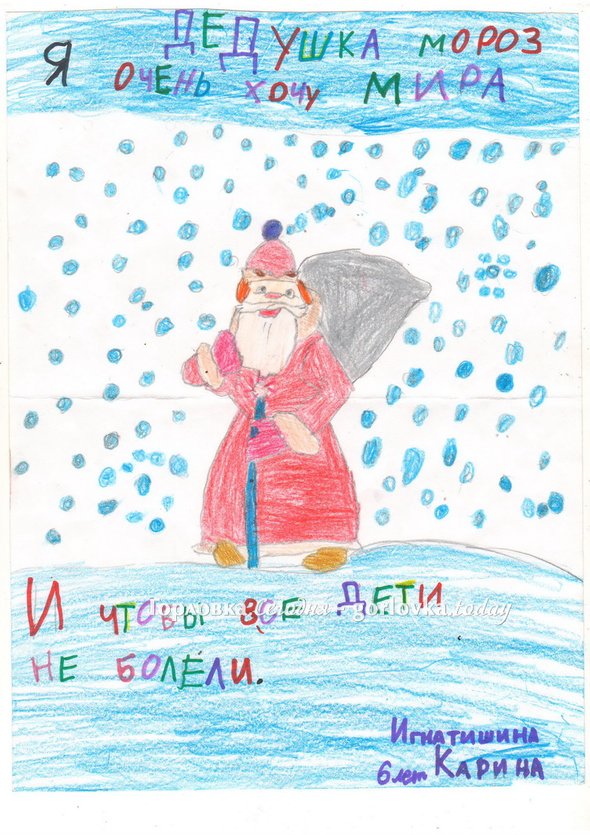 ДЕДУШКА МОРОЗ
Я ОЧЕНЬ ХОЧУ МИРА
И ЧТОБЫ ВСЕ ДЕТИ
Горловка Сегодня - gorlovka.today
НЕ БОЛЕЛИ.
ИГНАТИШИНА
6 лет КАРИНА